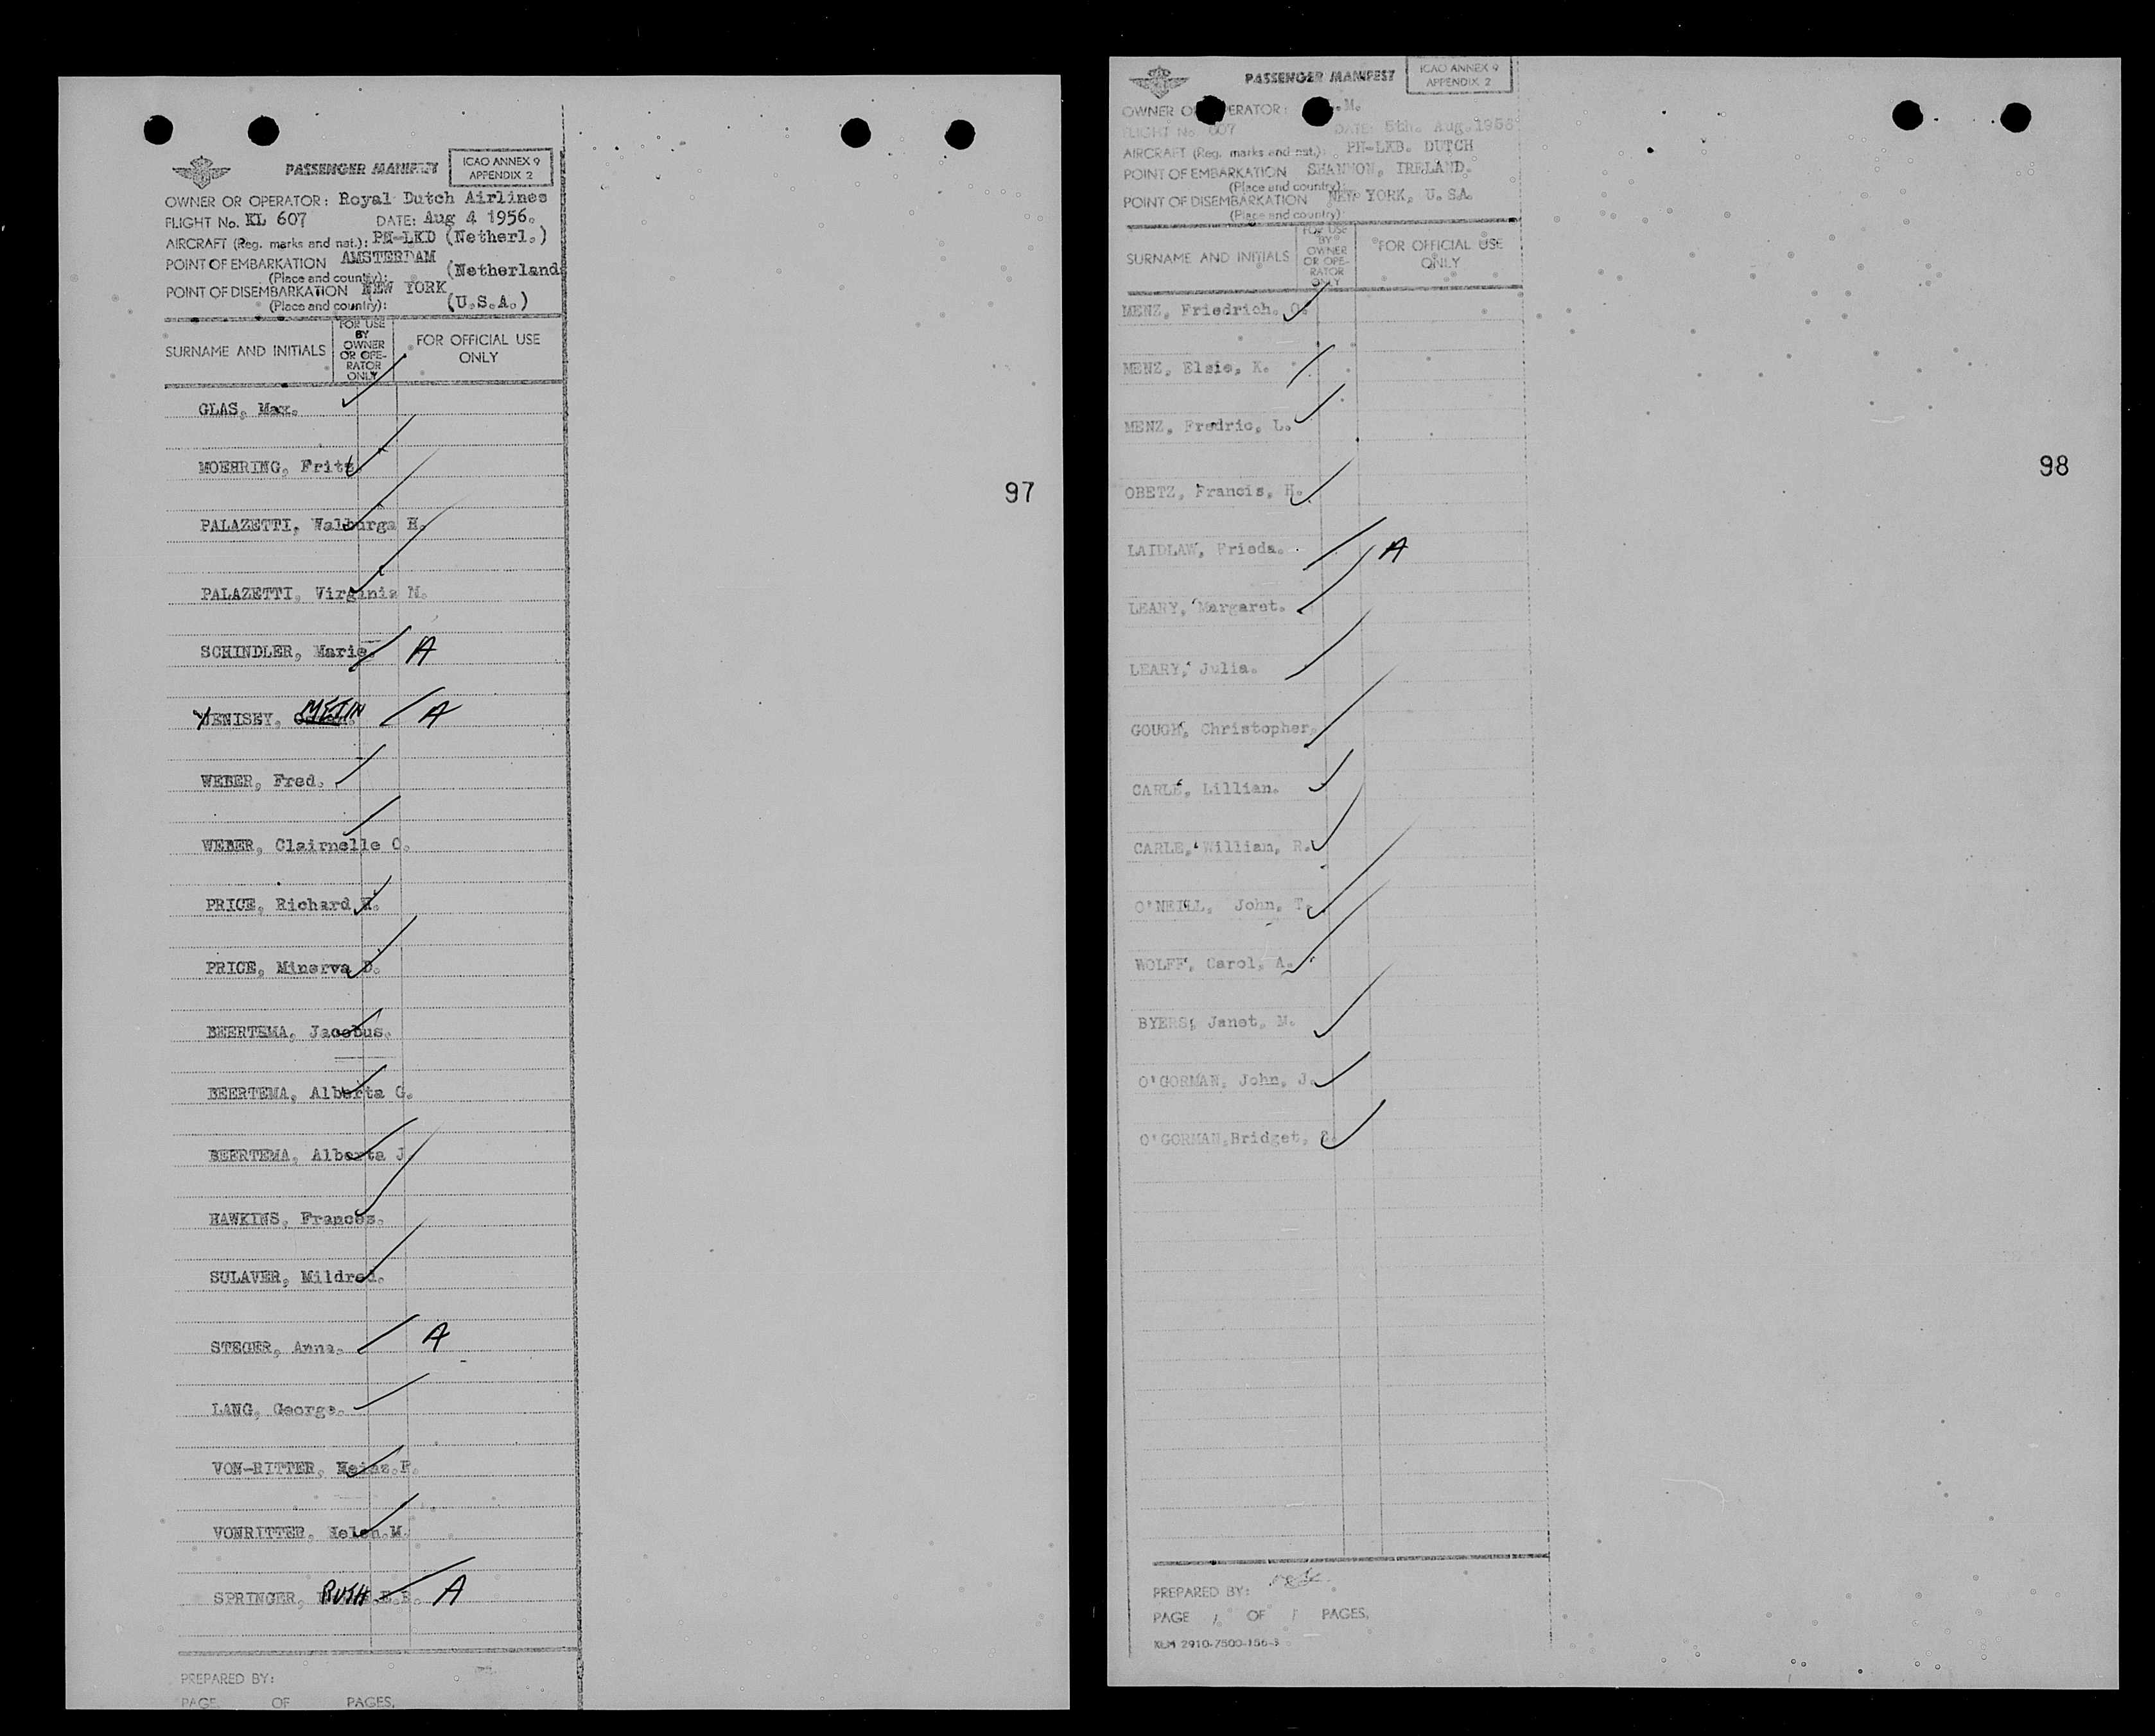 PASSENGER MANIFEST
ICAO ANNEX 9
APPENDIX 2
OWNER OR OPERATOR: Royal Dutch Airlines
FLIGHT No. KL 607 DATE: Aug 4 1956.
AIRCRAFT (Reg. marks and nat.): PH-LKD (Netherl.)
POINT OF EMBARKATION AMSTERDAM
(Place and country): (Netherland
POINT OF DISEMBARKATION NEW YORK
(Place and country): (U.S.A.)
SURNAME AND INITIALS
FOR USE
BY
OWNER
OR OPE-
RATOR
ONLY
FOR OFFICIAL USE
ONLY
GLAS, Max.
MOEHRING, Fritz.
PALAZETTI, Walburga H.
PALAZETTI, Virginia M.
SCHINDLER, Marie. A
YENISEY, METIN A
WEBER, Fred.
WEBER, Clairnelle O.
PRICE, Richard H.
PRICE, Minerva D.
BEERTEMA, Jacobus.
BEERTEMA, Alberta G.
BEERTEMA, Alberta J
HAWKINS, Frances.
SULAVER, Mildred.
STEGER, Anna. A
LANG, George.
VON-RITTER, Heinz.F.
VONRITTER, Helen.M.
SPRINGER, RUTH A
PREPARED BY:
PAGE OF PAGES.
97
PASSENGER MANIFEST
ICAO ANNEX 9
APPENDIX 2
OWNER OR OPERATOR: .M.
FLIGHT No. 607 DATE: 5th. Aug.1956
AIRCRAFT (Reg. marks and nat.): PH-LKB. DUTCH
POINT OF EMBARKATION SHANNON, IRELAND.
(Place and country):
POINT OF DISEMBARKATION NEW YORK, U.S.A.
(Place and country):
SURNAME AND INITIALS
FOR USE
BY
OWNER
OR OPE-
RATOR
ONLY
FOR OFFICIAL USE
ONLY
MENZ, Friedrich.
MENZ, Elsie, K.
MENZ, Fredric, L.
OBETZ, Francis, H.
LAIDLAW, Frieda. A
LEARY, Margaret.
LEARY, Julia.
GOUGH, Christopher.
CARLE, Lillian.
CARLE, William, R.
O'NEILL, John, T.
WOLFF, Carol, A.
BYERS, Janet, M.
O'GORMAN, John, J.
O'GORMAN,Bridget,
PREPARED BY:
PAGE 1. OF 1 PAGES.
KLM 2910-7500-156-3
98